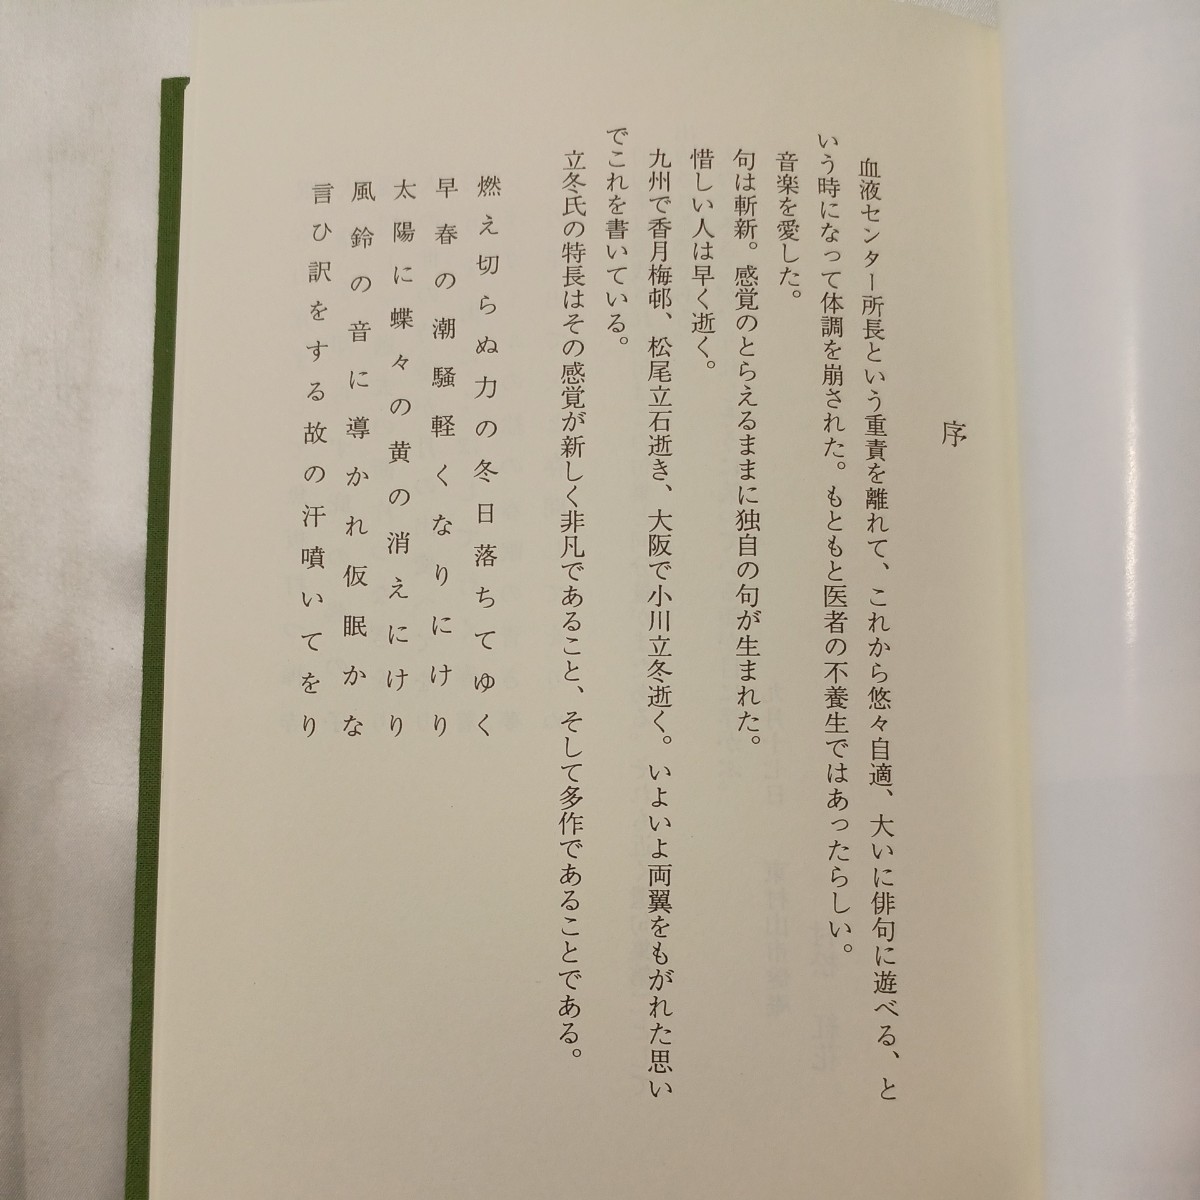 序
血液センター所長という重責を離れて、これから悠々自適、大いに俳句に遊べる、と
いう時になって体調を崩された。もともと医者の不養生ではあったらしい。
音楽を愛した。
句は斬新。感覚のとらえるままに独自の句が生まれた。
惜しい人は早く逝く。
九州で香月梅邨、松尾立石逝き、大阪で小川立冬逝く。いよいよ両翼をもがれた思い
でこれを書いている。
立冬氏の特長はその感覚が新しく非凡であること、そして多作であることである。
燃え切らぬ力の冬日落ちてゆく
早春の潮騒軽くなりにけり
太陽に蝶々の黄の消えにけり
風鈴の音に導かれ仮眠かな
言ひ訳をする故の汗噴いてをり